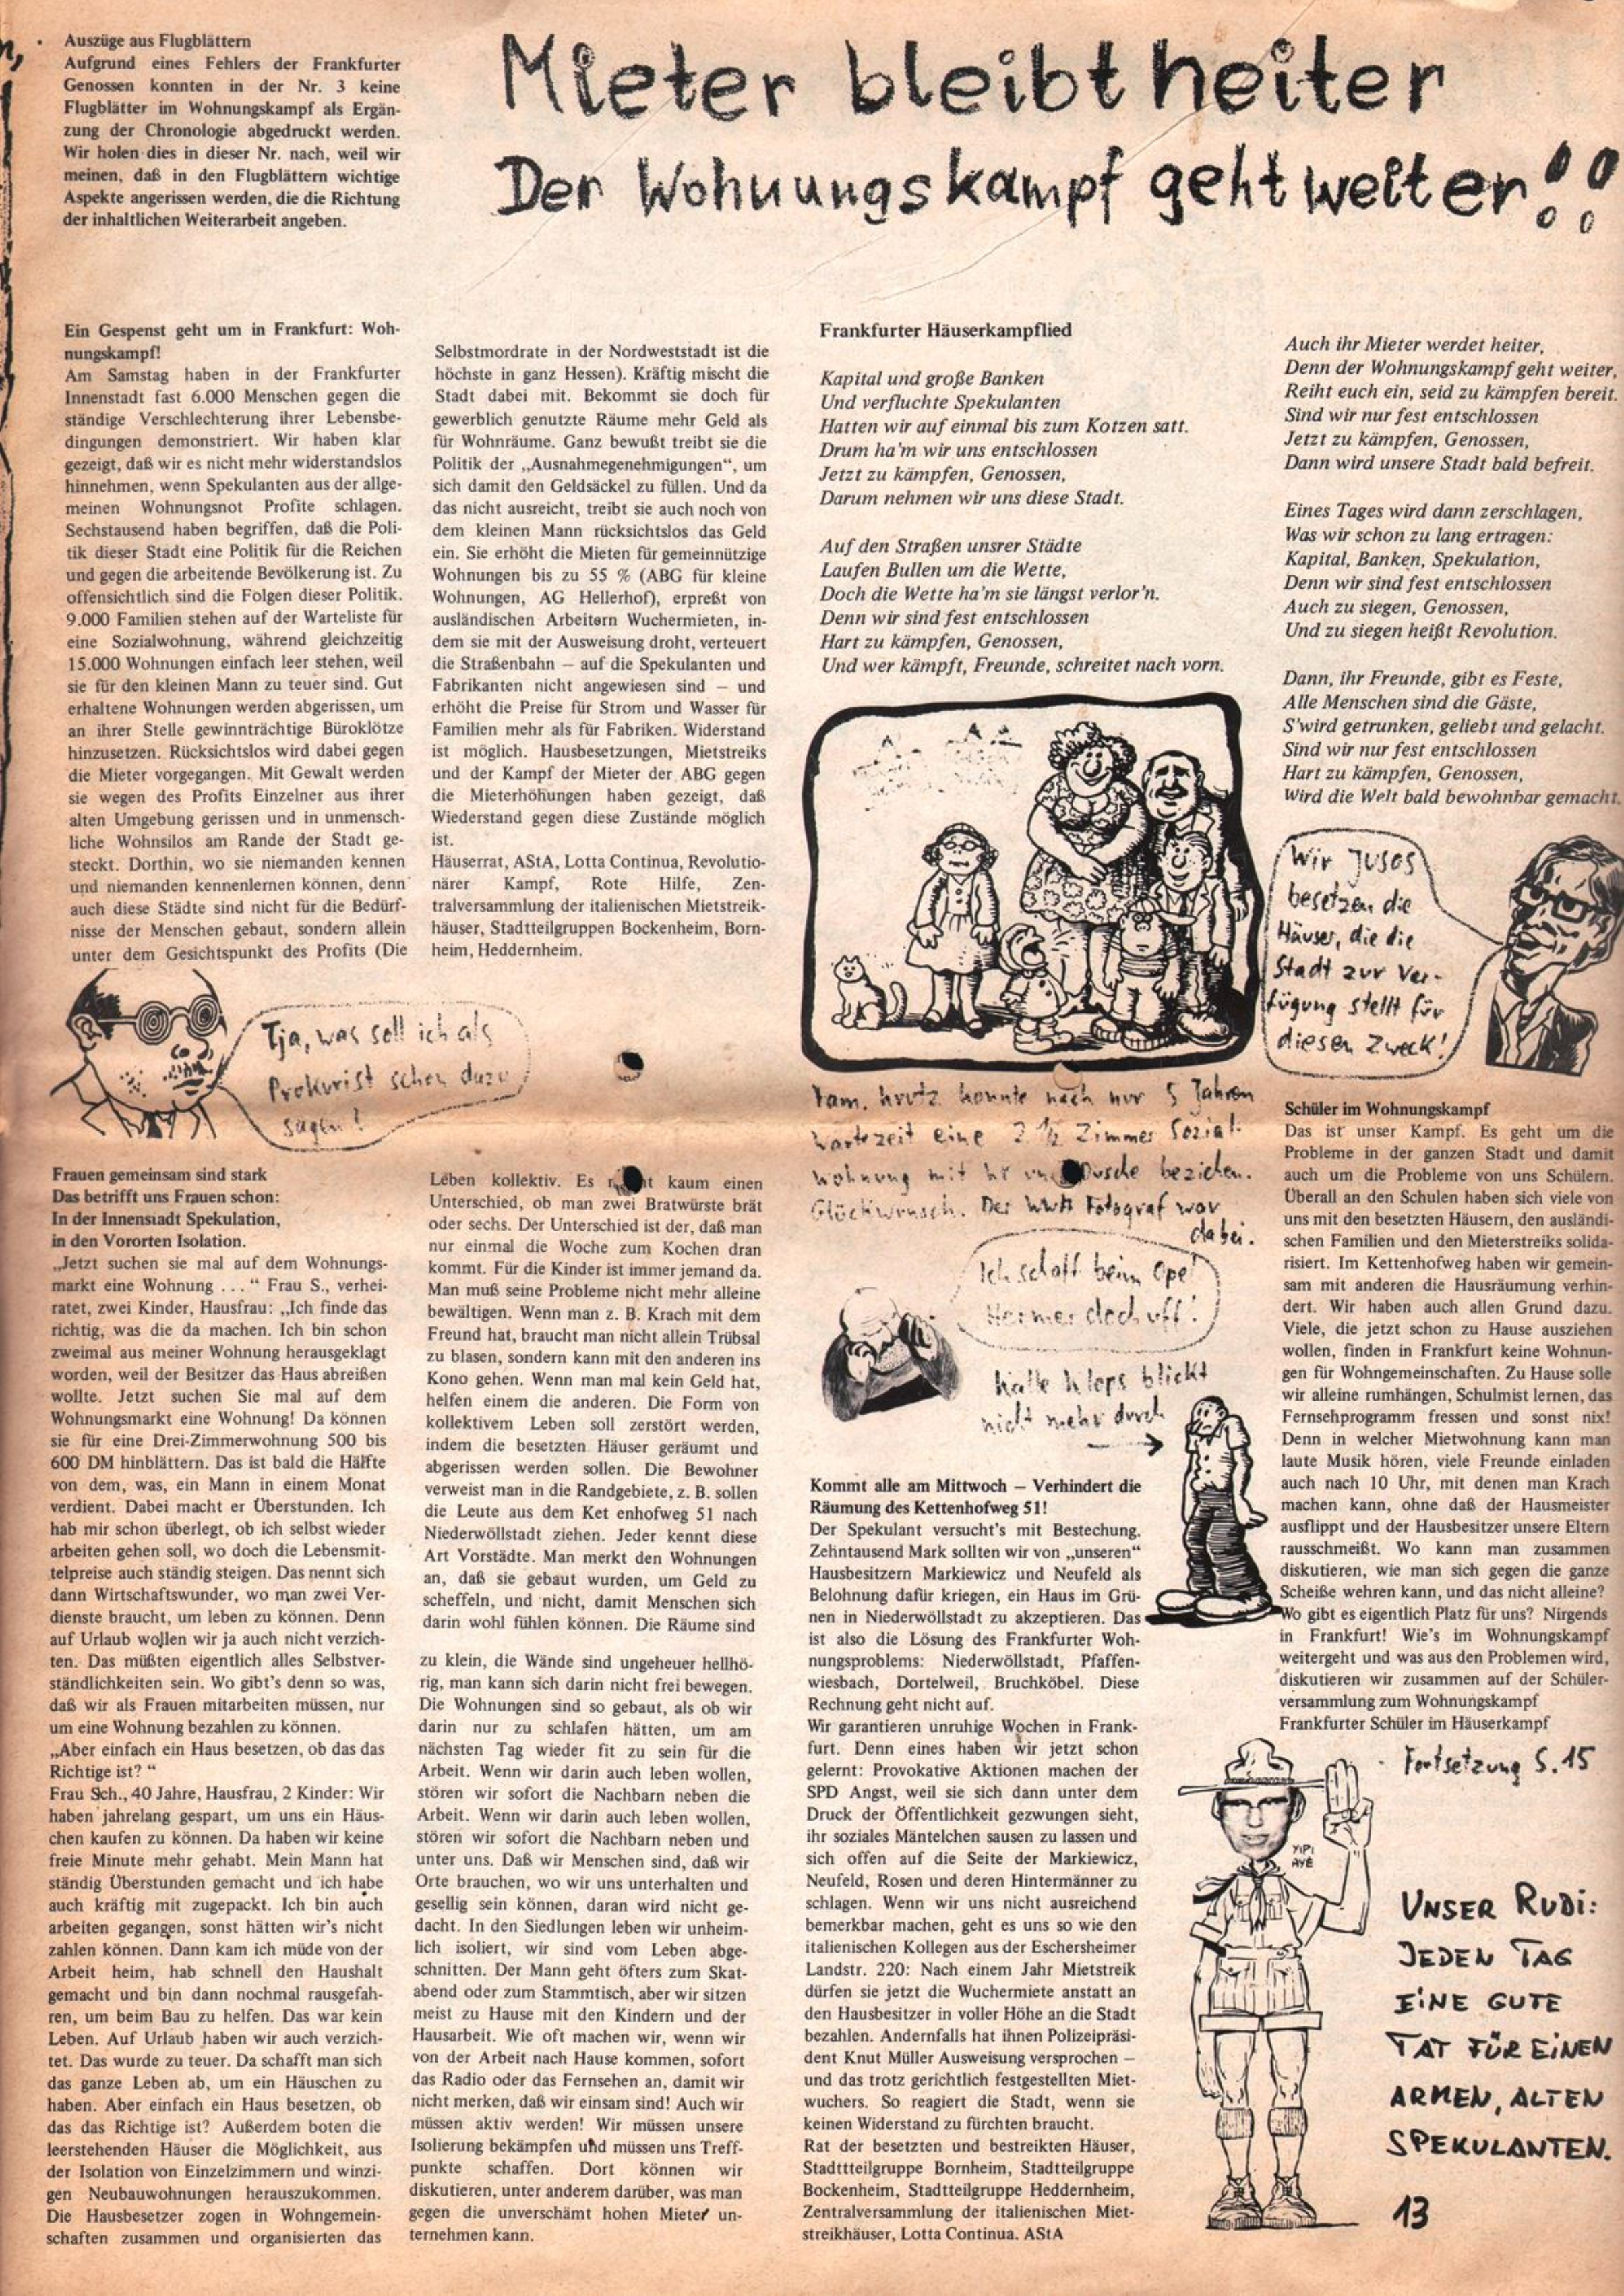 Auszüge aus Flugblättern
Aufgrund eines Fehlers der Frankfurter
Genossen konnten in der Nr. 3 keine
Flugblätter im Wohnungskampf als Ergän-
zung der Chronologie abgedruckt werden.
Wir holen dies in dieser Nr. nach, weil wir
meinen, daß in den Flugblättern wichtige
Aspekte angerissen werden, die die Richtung
der inhaltlichen Weiterarbeit angeben.
Mieter bleibt heiter
Der Wohnungskampf geht weiter!!
Ein Gespenst geht um in Frankfurt: Woh-
nungskampf!
Am Samstag haben in der Frankfurter
Innenstadt fast 6.000 Menschen gegen die
ständige Verschlechterung ihrer Lebensbe-
dingungen demonstriert. Wir haben klar
gezeigt, daß wir es nicht mehr widerstandslos
hinnehmen, wenn Spekulanten aus der allge-
meinen Wohnungsnot Profite schlagen.
Sechstausend haben begriffen, daß die Poli-
tik dieser Stadt eine Politik für die Reichen
und gegen die arbeitende Bevölkerung ist. Zu
offensichtlich sind die Folgen dieser Politik.
9.000 Familien stehen auf der Warteliste für
eine Sozialwohnung, während gleichzeitig
15.000 Wohnungen einfach leer stehen, weil
sie für den kleinen Mann zu teuer sind. Gut
erhaltene Wohnungen werden abgerissen, um
an ihrer Stelle gewinnträchtige Büroklötze
hinzusetzen. Rücksichtslos wird dabei gegen
die Mieter vorgegangen. Mit Gewalt werden
sie wegen des Profits Einzelner aus ihrer
alten Umgebung gerissen und in unmensch-
liche Wohnsilos am Rande der Stadt ge-
steckt. Dorthin, wo sie niemanden kennen
und niemanden kennenlernen können, denn
auch diese Städte sind nicht für die Bedürf-
nisse der Menschen gebaut, sondern allein
unter dem Gesichtspunkt des Profits (Die
Selbstmordrate in der Nordweststadt ist die
höchste in ganz Hessen). Kräftig mischt die
Stadt dabei mit. Bekommt sie doch für
gewerblich genutzte Räume mehr Geld als
für Wohnräume. Ganz bewußt treibt sie die
Politik der „Ausnahmegenehmigungen“, um
sich damit den Geldsäckel zu füllen. Und da
das nicht ausreicht, treibt sie auch noch von
dem kleinen Mann rücksichtslos das Geld
ein. Sie erhöht die Mieten für gemeinnützige
Wohnungen bis zu 55 % (ABG für kleine
Wohnungen, AG Hellerhof), erpreßt von
ausländischen Arbeitern Wuchermieten, in-
dem sie mit der Ausweisung droht, verteuert
die Straßenbahn — auf die Spekulanten und
Fabrikanten nicht angewiesen sind — und
erhöht die Preise für Strom und Wasser für
Familien mehr als für Fabriken. Widerstand
ist möglich. Hausbesetzungen, Mietstreiks
und der Kampf der Mieter der ABG gegen
die Mieterhöhungen haben gezeigt, daß
Wiederstand gegen diese Zustände möglich
ist.
Häuserrat, AStA, Lotta Continua, Revolutio-
närer Kampf, Rote Hilfe, Zen-
tralversammlung der italienischen Mietstreik-
häuser, Stadtteilgruppen Bockenheim, Born-
heim, Heddernheim.
Tja, was soll ich als
Prokurist schon dazu
sagen!
Frankfurter Häuserkampflied
Kapital und große Banken
Und verfluchte Spekulanten
Hatten wir auf einmal bis zum Kotzen satt.
Drum ha'm wir uns entschlossen
Jetzt zu kämpfen, Genossen,
Darum nehmen wir uns diese Stadt.
Auf den Straßen unsrer Städte
Laufen Bullen um die Wette,
Doch die Wette ha'm sie längst verlor'n.
Denn wir sind fest entschlossen
Hart zu kämpfen, Genossen,
Und wer kämpft, Freunde, schreitet nach vorn.
Auch ihr Mieter werdet heiter,
Denn der Wohnungskampf geht weiter,
Reiht euch ein, seid zu kämpfen bereit.
Sind wir nur fest entschlossen
Jetzt zu kämpfen, Genossen,
Dann wird unsere Stadt bald befreit.
Eines Tages wird dann zerschlagen,
Was wir schon zu lang ertragen:
Kapital, Banken, Spekulation,
Denn wir sind fest entschlossen
Auch zu siegen, Genossen,
Und zu siegen heißt Revolution.
Dann, ihr Freunde, gibt es Feste,
Alle Menschen sind die Gäste,
S'wird getrunken, geliebt und gelacht.
Sind wir nur fest entschlossen
Hart zu kämpfen, Genossen,
Wird die Welt bald bewohnbar gemacht.
Wir JUSOS
besetzen die
Häuser, die die
Stadt zur Ver-
fügung stellt für
diesen Zweck!
Fam. konnte nach nur 5 Jahren
Wartezeit eine 2 ½ Zimmer Sozial-
wohnung mit Dusche beziehen.
Glückwunsch. Der Fotograf war
dabei.
Ich schaff beim Opel
Hermer doch uff!
Kalle Klops blickt
nicht mehr durch
Frauen gemeinsam sind stark
Das betrifft uns Frauen schon:
In der Innenstadt Spekulation,
in den Vororten Isolation.
„Jetzt suchen sie mal auf dem Wohnungs-
markt eine Wohnung . . .“ Frau S., verhei-
ratet, zwei Kinder, Hausfrau: „Ich finde das
richtig, was die da machen. Ich bin schon
zweimal aus meiner Wohnung herausgeklagt
worden, weil der Besitzer das Haus abreißen
wollte. Jetzt suchen Sie mal auf dem
Wohnungsmarkt eine Wohnung! Da können
sie für eine Drei-Zimmerwohnung 500 bis
600 DM hinblättern. Das ist bald die Hälfte
von dem, was, ein Mann in einem Monat
verdient. Dabei macht er Überstunden. Ich
hab mir schon überlegt, ob ich selbst wieder
arbeiten gehen soll, wo doch die Lebensmit-
telpreise auch ständig steigen. Das nennt sich
dann Wirtschaftswunder, wo man zwei Ver-
dienste braucht, um leben zu können. Denn
auf Urlaub wollen wir ja auch nicht verzich-
ten. Das müßten eigentlich alles Selbstver-
ständlichkeiten sein. Wo gibt's denn so was,
daß wir als Frauen mitarbeiten müssen, nur
um eine Wohnung bezahlen zu können.
„Aber einfach ein Haus besetzen, ob das das
Richtige ist? “
Frau Sch., 40 Jahre, Hausfrau, 2 Kinder: Wir
haben jahrelang gespart, um uns ein Häus-
chen kaufen zu können. Da haben wir keine
freie Minute mehr gehabt. Mein Mann hat
ständig Überstunden gemacht und ich habe
auch kräftig mit zugepackt. Ich bin auch
arbeiten gegangen, sonst hätten wir's nicht
zahlen können. Dann kam ich müde von der
Arbeit heim, hab schnell den Haushalt
gemacht und bin dann nochmal rausgefah-
ren, um beim Bau zu helfen. Das war kein
Leben. Auf Urlaub haben wir auch verzich-
tet. Das wurde zu teuer. Da schafft man sich
das ganze Leben ab, um ein Häuschen zu
haben. Aber einfach ein Haus besetzen, ob
das das Richtige ist? Außerdem boten die
leerstehenden Häuser die Möglichkeit, aus
der Isolation von Einzelzimmern und winzi-
gen Neubauwohnungen herauszukommen.
Die Hausbesetzer zogen in Wohngemein-
schaften zusammen und organisierten das
Leben kollektiv. Es kaum einen
Unterschied, ob man zwei Bratwürste brät
oder sechs. Der Unterschied ist der, daß man
nur einmal die Woche zum Kochen dran
kommt. Für die Kinder ist immer jemand da.
Man muß seine Probleme nicht mehr alleine
bewältigen. Wenn man z. B. Krach mit dem
Freund hat, braucht man nicht allein Trübsal
zu blasen, sondern kann mit den anderen ins
Kono gehen. Wenn man mal kein Geld hat,
helfen einem die anderen. Die Form von
kollektivem Leben soll zerstört werden,
indem die besetzten Häuser geräumt und
abgerissen werden sollen. Die Bewohner
verweist man in die Randgebiete, z. B. sollen
die Leute aus dem Ket enhofweg 51 nach
Niederwöllstadt ziehen. Jeder kennt diese
Art Vorstädte. Man merkt den Wohnungen
an, daß sie gebaut wurden, um Geld zu
scheffeln, und nicht, damit Menschen sich
darin wohl fühlen können. Die Räume sind
zu klein, die Wände sind ungeheuer hellhö-
rig, man kann sich darin nicht frei bewegen.
Die Wohnungen sind so gebaut, als ob wir
darin nur zu schlafen hätten, um am
nächsten Tag wieder fit zu sein für die
Arbeit. Wenn wir darin auch leben wollen,
stören wir sofort die Nachbarn neben die
Arbeit. Wenn wir darin auch leben wollen,
stören wir sofort die Nachbarn neben und
unter uns. Daß wir Menschen sind, daß wir
Orte brauchen, wo wir uns unterhalten und
gesellig sein können, daran wird nicht ge-
dacht. In den Siedlungen leben wir unheim-
lich isoliert, wir sind vom Leben abge-
schnitten. Der Mann geht öfters zum Skat-
abend oder zum Stammtisch, aber wir sitzen
meist zu Hause mit den Kindern und der
Hausarbeit. Wie oft machen wir, wenn wir
von der Arbeit nach Hause kommen, sofort
das Radio oder das Fernsehen an, damit wir
nicht merken, daß wir einsam sind! Auch wir
müssen aktiv werden! Wir müssen unsere
Isolierung bekämpfen und müssen uns Treff-
punkte schaffen. Dort können wir
diskutieren, unter anderem darüber, was man
gegen die unverschämt hohen Mieter un-
ternehmen kann.
Kommt alle am Mittwoch — Verhindert die
Räumung des Kettenhofweg 51!
Der Spekulant versucht's mit Bestechung.
Zehntausend Mark sollten wir von „unseren“
Hausbesitzern Markiewicz und Neufeld als
Belohnung dafür kriegen, ein Haus im Grü-
nen in Niederwöllstadt zu akzeptieren. Das
ist also die Lösung des Frankfurter Woh-
nungsproblems: Niederwöllstadt, Pfaffen-
wiesbach, Dortelweil, Bruchköbel. Diese
Rechnung geht nicht auf.
Wir garantieren unruhige Wochen in Frank-
furt. Denn eines haben wir jetzt schon
gelernt: Provokative Aktionen machen der
SPD Angst, weil sie sich dann unter dem
Druck der Öffentlichkeit gezwungen sieht,
ihr soziales Mäntelchen sausen zu lassen und
sich offen auf die Seite der Markiewicz,
Neufeld, Rosen und deren Hintermänner zu
schlagen. Wenn wir uns nicht ausreichend
bemerkbar machen, geht es uns so wie den
italienischen Kollegen aus der Eschersheimer
Landstr. 220: Nach einem Jahr Mietstreik
dürfen sie jetzt die Wuchermiete anstatt an
den Hausbesitzer in voller Höhe an die Stadt
bezahlen. Andernfalls hat ihnen Polizeipräsi-
dent Knut Müller Ausweisung versprochen —
und das trotz gerichtlich festgestellten Miet-
wuchers. So reagiert die Stadt, wenn sie
keinen Widerstand zu fürchten braucht.
Rat der besetzten und bestreikten Häuser,
Stadttteilgruppe Bornheim, Stadtteilgruppe
Bockenheim, Stadtteilgruppe Heddernheim,
Zentralversammlung der italienischen Miet-
streikhäuser, Lotta Continua. AStA
Schüler im Wohnungskampf
Das ist unser Kampf. Es geht um die
Probleme in der ganzen Stadt und damit
auch um die Probleme von uns Schülern.
Überall an den Schulen haben sich viele von
uns mit den besetzten Häusern, den ausländi-
schen Familien und den Mieterstreiks solida-
risiert. Im Kettenhofweg haben wir gemein-
sam mit anderen die Hausräumung verhin-
dert. Wir haben auch allen Grund dazu.
Viele, die jetzt schon zu Hause ausziehen
wollen, finden in Frankfurt keine Wohnun-
gen für Wohngemeinschaften. Zu Hause solle
wir alleine rumhängen, Schulmist lernen, das
Fernsehprogramm fressen und sonst nix!
Denn in welcher Mietwohnung kann man
laute Musik hören, viele Freunde einladen
auch nach 10 Uhr, mit denen man Krach
machen kann, ohne daß der Hausmeister
ausflippt und der Hausbesitzer unsere Eltern
rausschmeißt. Wo kann man zusammen
diskutieren, wie man sich gegen die ganze
Scheiße wehren kann, und das nicht alleine?
Wo gibt es eigentlich Platz für uns? Nirgends
in Frankfurt! Wie's im Wohnungskampf
weitergeht und was aus den Problemen wird,
diskutieren wir zusammen auf der Schüler-
versammlung zum Wohnungskampf
Frankfurter Schüler im Häuserkampf
Fortsetzung S. 15
YIPI
AYÉ
UNSER RUDI:
JEDEN TAG
EINE GUTE
TAT FÜR EINEN
ARMEN, ALTEN
SPEKULANTEN.
13